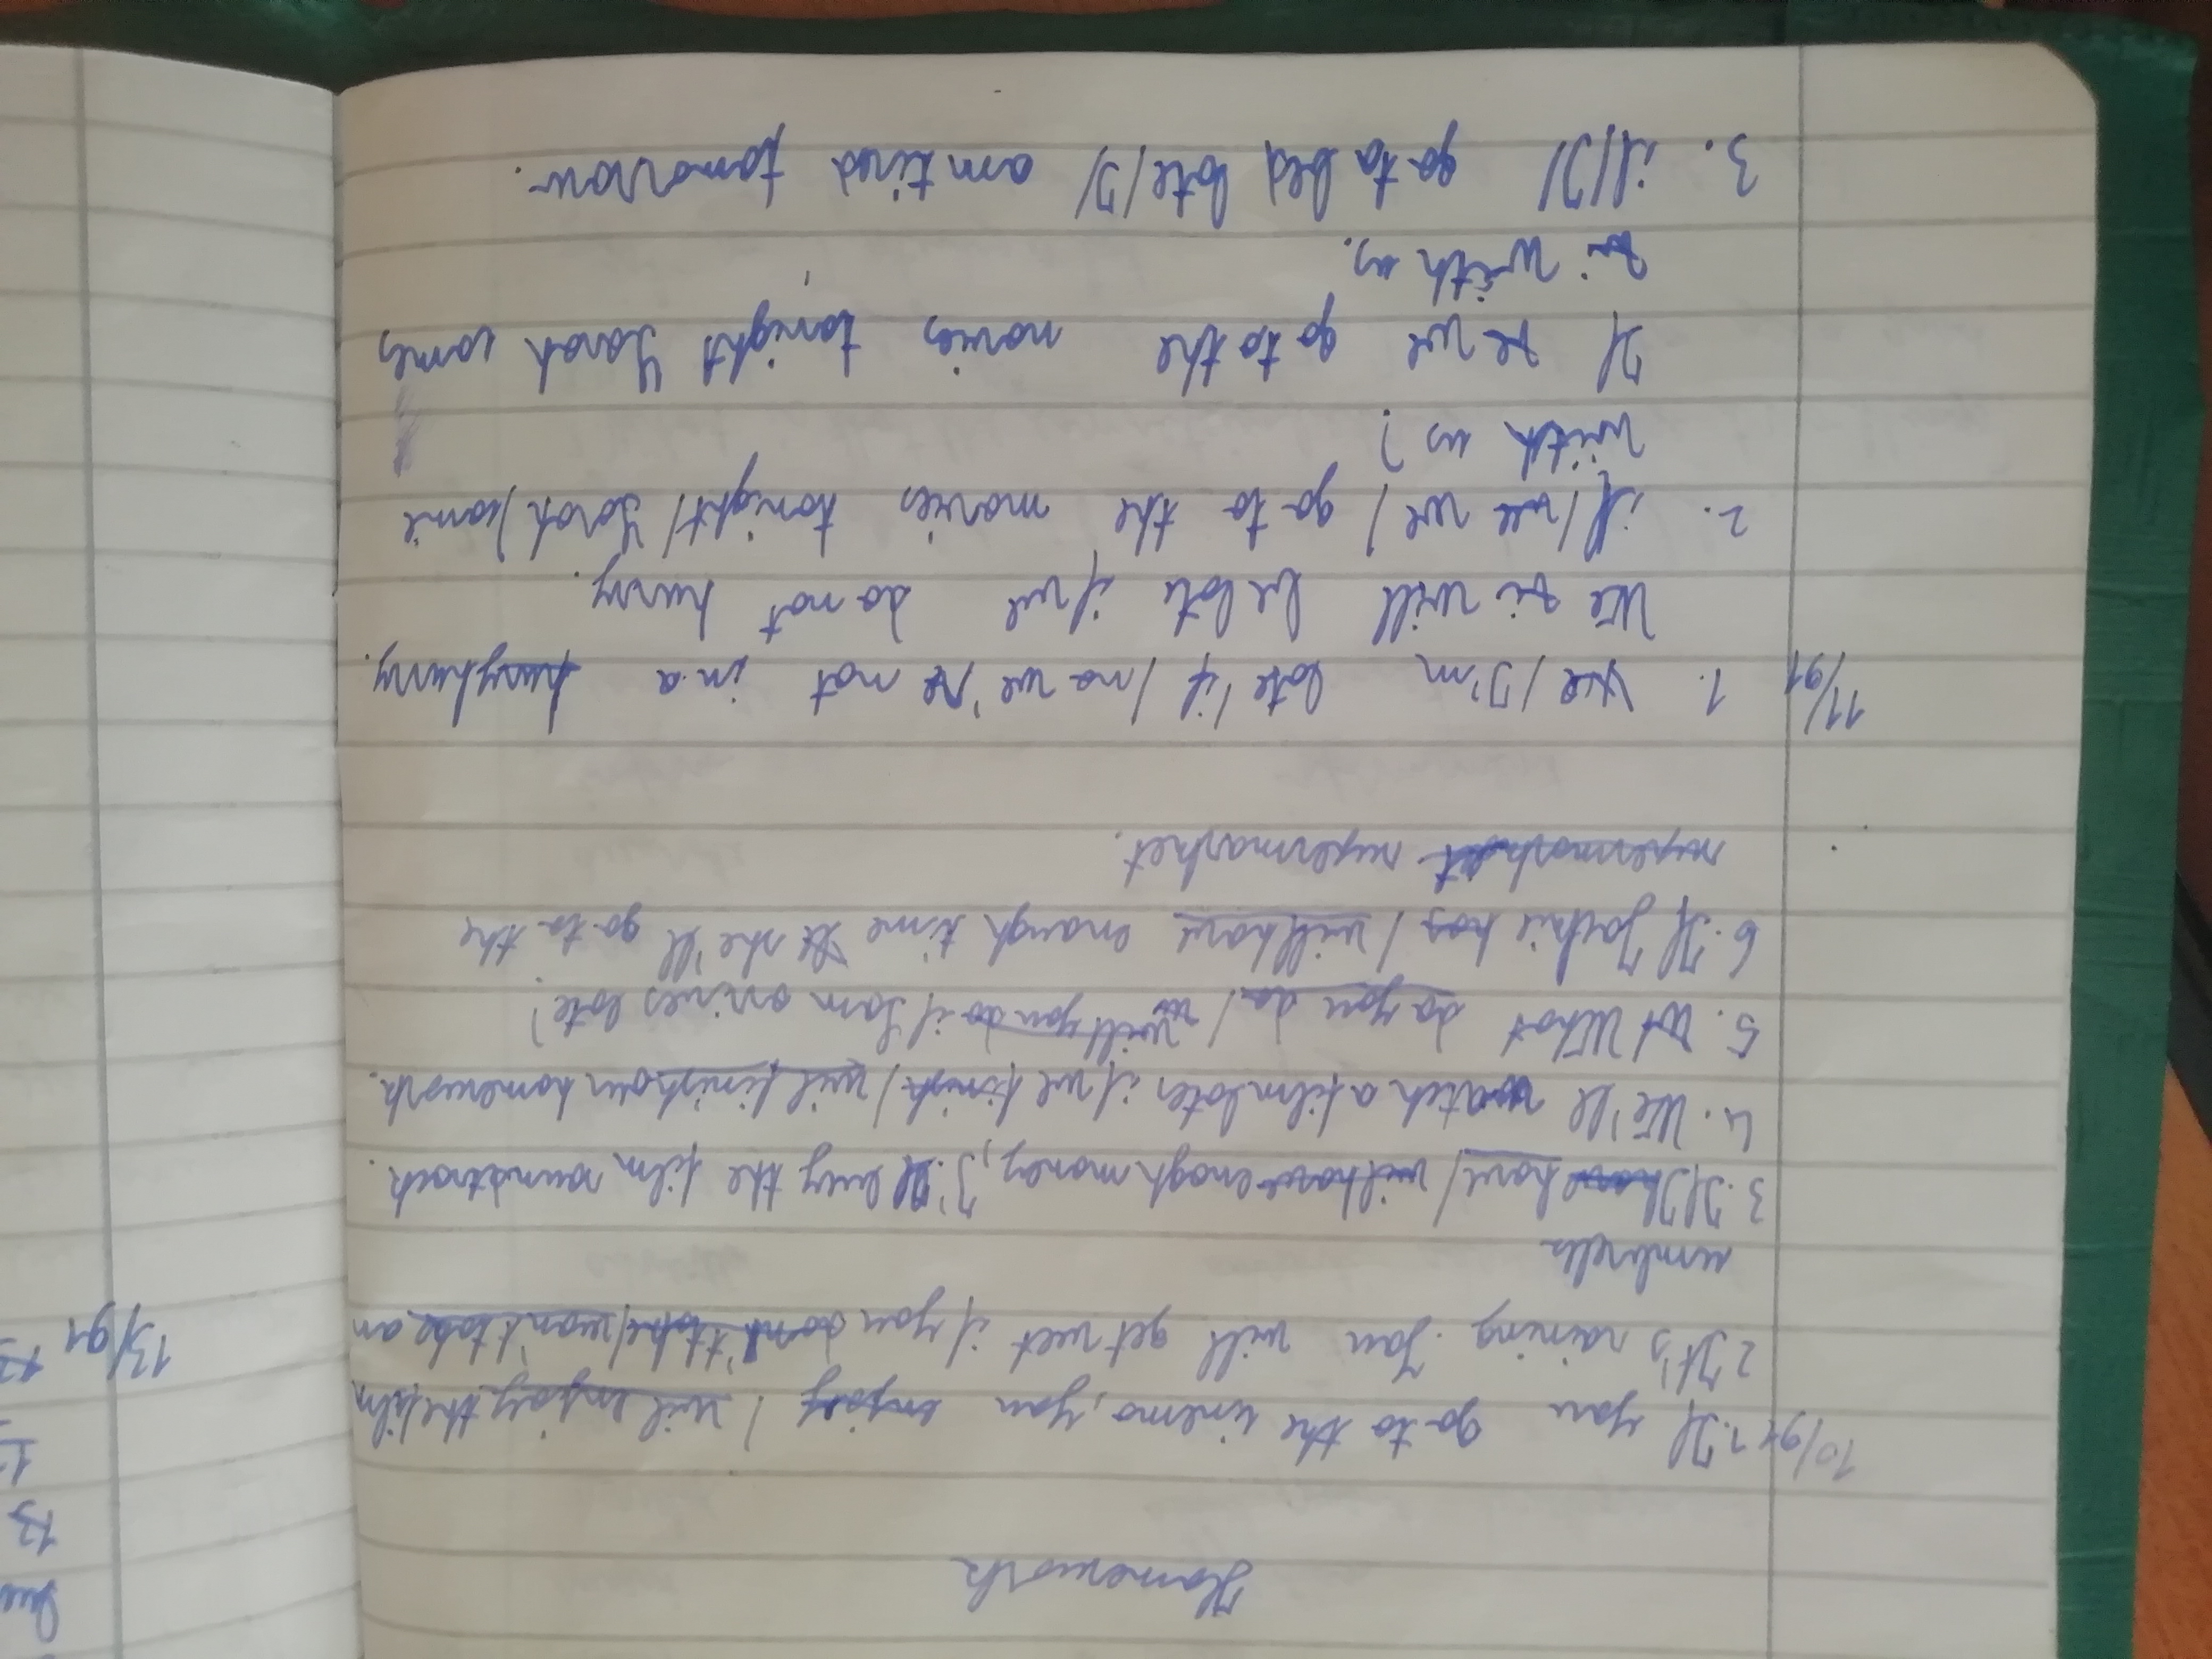 Homework
10/91 1. If you go to the cinema, you enjoy / wil enjoy the film
2 It's raining. You will get wet if you don't take / won't take an
umbrella
3. If I have have / wil have enogh money, I'll buy the film soundtrack.
4. We'll watch a film later if we finish / wil finish our homework.
5. Wt What do you do / w will you do if Sam arrives late?
6. If Jackie has / will have enough time she'll go to the
supermarket supermarket.
11/91 1. we / I'm late / if / no we're not in a hurry hurry.
We will be late if we do not hurry.
2. if / we we / go to the movies tonight / Sarah / come
with us?
If we go to the movies tonight Sarah comes
with us.
3. if / I / go to bed late / I / am tired tomorrow.
13/91
13